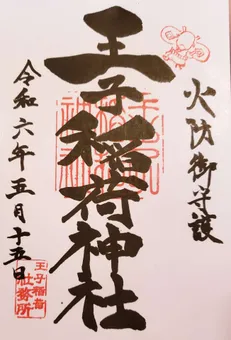 火防御守護
王子稲荷神社
令和六年五月十五日
王子稲荷
社務所